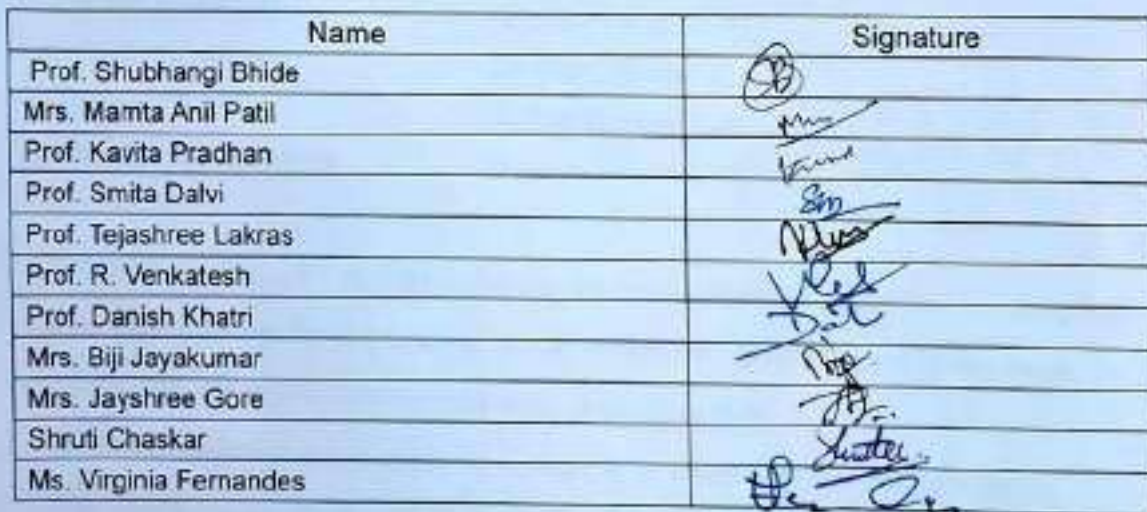 Name Signature
Prof. Shubhangi Bhide SB
Mrs. Mamta Anil Patil
Prof. Kavita Pradhan
Prof. Smita Dalvi
Prof. Tejashree Lakras
Prof. R. Venkatesh
Prof. Danish Khatri
Mrs. Biji Jayakumar
Mrs. Jayshree Gore
Shruti Chaskar
Ms. Virginia Fernandes